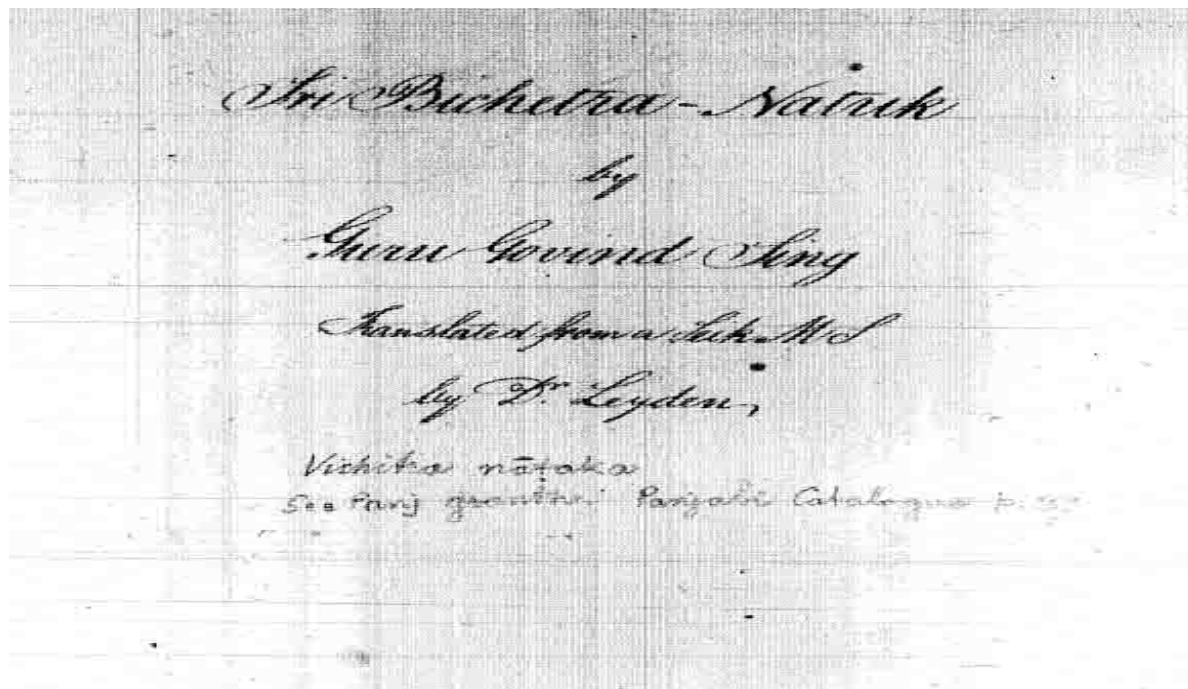 Sri Bichetra - Natuk
by
Guru Govind Sing
Translated from a Seik MS
by Dr. Leyden,
Vichitra nāṭaka
See Panj granthi Panjabi Catalogue p.